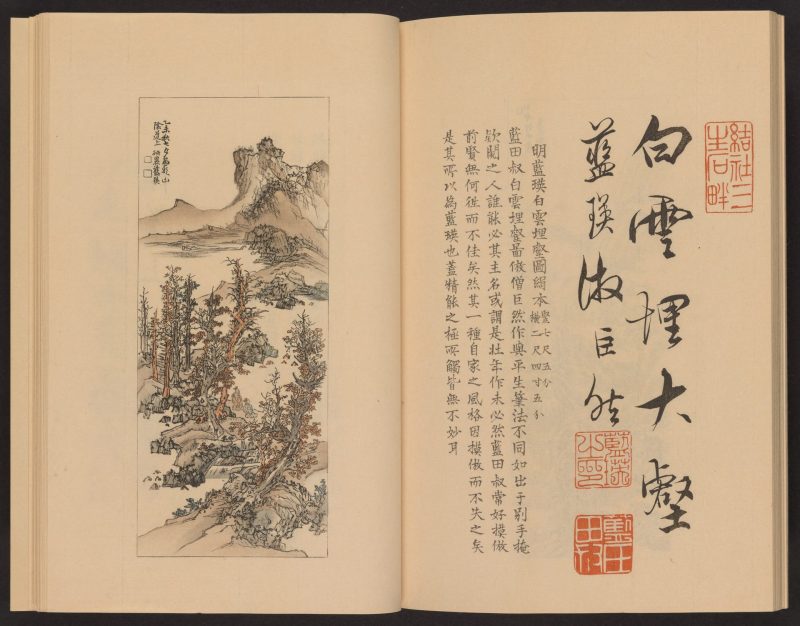 結社三
生石畔
白雲埋大壑
藍瑛倣巨然
藍瑛
之印
明藍瑛白雲埋壑圖絹本 豎七尺五分
橫二尺四寸五分
藍田叔白雲埋壑啚倣僧巨然作與平生筆法不同如出于別手掩
欵閱之人誰能必其主名或謂是壯年作未必然藍田叔常好摸倣
前賢無何徃而不佳矣然其一種自家之風格因摸倣而不失之矣
是其所以為藍瑛也蓋精能之極所觸皆無不妙耳
乙未秋七夕